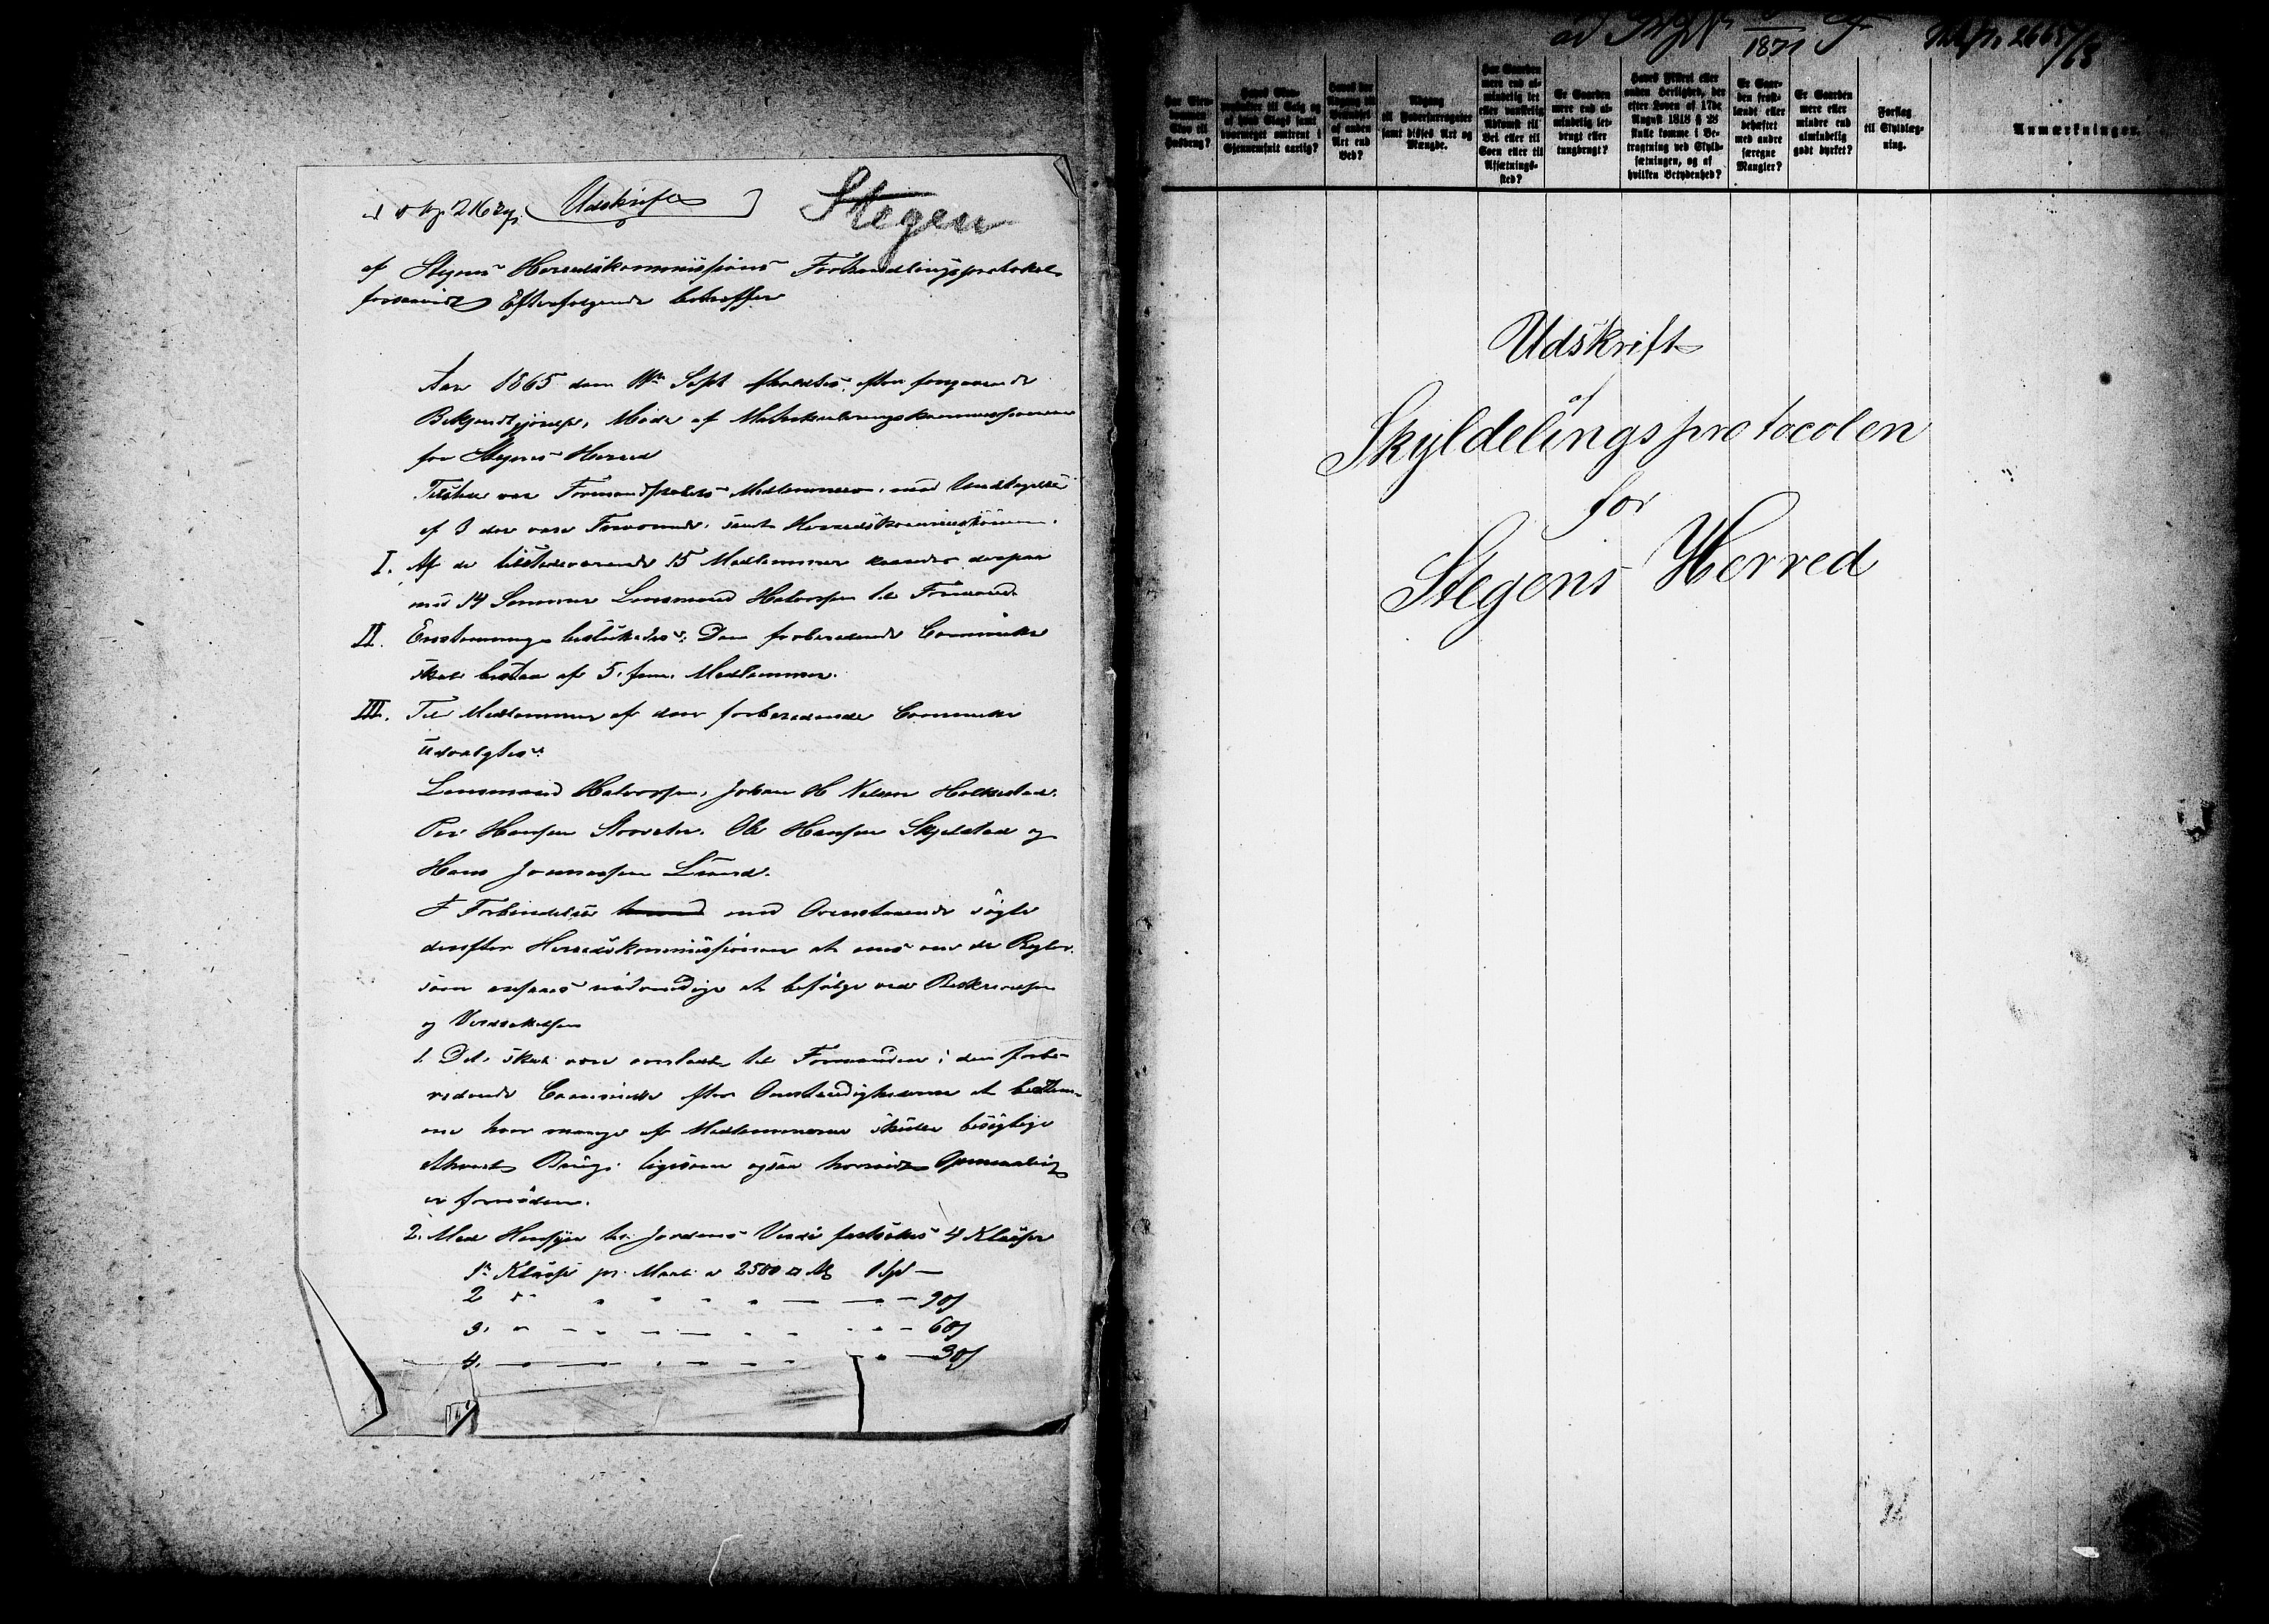 Udskrift
Stegen
af Stegens Herredskommissions Forhandlingsprotokol
forsaavidt Efterfølgende betræffer
Aar 1865 den Sept afholdtes, efter foregaaende
Bekjendtgjørelse, Møde af Matrikuleringskommissionen
for Stegens Herred
Tilstede var Formandskabets Medlemmer, med Undtagelse
af 3 der vare Fraværende, samt Herredskommissionen.
I. Af de tilstedeværende 15 Medlemmer kaaredes derpaa
med 14 Stemmer Lensmand Halvorsen til Formand
II. Enstemmig besluttedes: Den forberedende Committe
skal bestaa af 5, fem, Medlemmer.
III. Til Medlemmer af den forberedende Committe
udvalgtes:
Lensmand Halvorsen, Johan H Nelsen Holkestad.
Per Hansen Storsæter. Ole Hansen Skjelstad og
Hans Joensen Lund.
I Forbindelse med Ovenstaaende søgte
derefter Herredskommissionen at enes om de Regler,
som ansaaes nødvendige at befølge ved Beskrivelsen
og Værdsættelsen
1. Det skal være overladt til Formanden i den forbe-
redende Committe efter Omstændighederne at bestem-
me hvor mange af Medlemmerne skulle besigtige
ethvert Brug, ligesom ogsaa hvorvidt Opmaaling
er fornøden.
2. Med Hensyn til Jordens Værdi fastsattes 4 Klasser
1ste Klasse pr. Maal a 2500 □ Al 1 Spd —
2 " " " " " — — 90 s
3. " " " " " — — 60 s
4. " " " " " — — 30 s
ad
1871
2665/68
Har Eien-
dommen
Skov til
Husbrug?
Haves Skov-
produkter til Salg og
af hvad Slags samt
hvormeget omtrent i
Gjennemsnit aarlig?
Haves der
Adgang til
Brændsel
af anden
Art end
Ved?
Adgang
til Foderfurrogater
samt disses Art og
Mængde.
Har Gaarden
mere end al-
mindelig let
eller vanskelig
Adkomst til
Vei eller til
Søen eller til
Afsætnings-
sted?
Er Gaarden
mere end al-
mindelig let-
brugt eller
tungbrugt?
Haves Fiskeri eller
anden Herlighed, der
efter Loven af 17de
August 1818 § 28
skulle komme i Be-
tragtning ved Skyld-
sætningen, og af
hvilken Betydenhed?
Er Gaar-
den frost-
lændt eller
behæftet
med andre
særegne
Mangler?
Er Gaarden
mere eller
mindre end
almindelig
godt dyrket?
Forslag
til Skyldlæg-
ning.
Anmærkninger.
Udskrift
af
Skyldelingsprotocolen
for
Stegens Herred